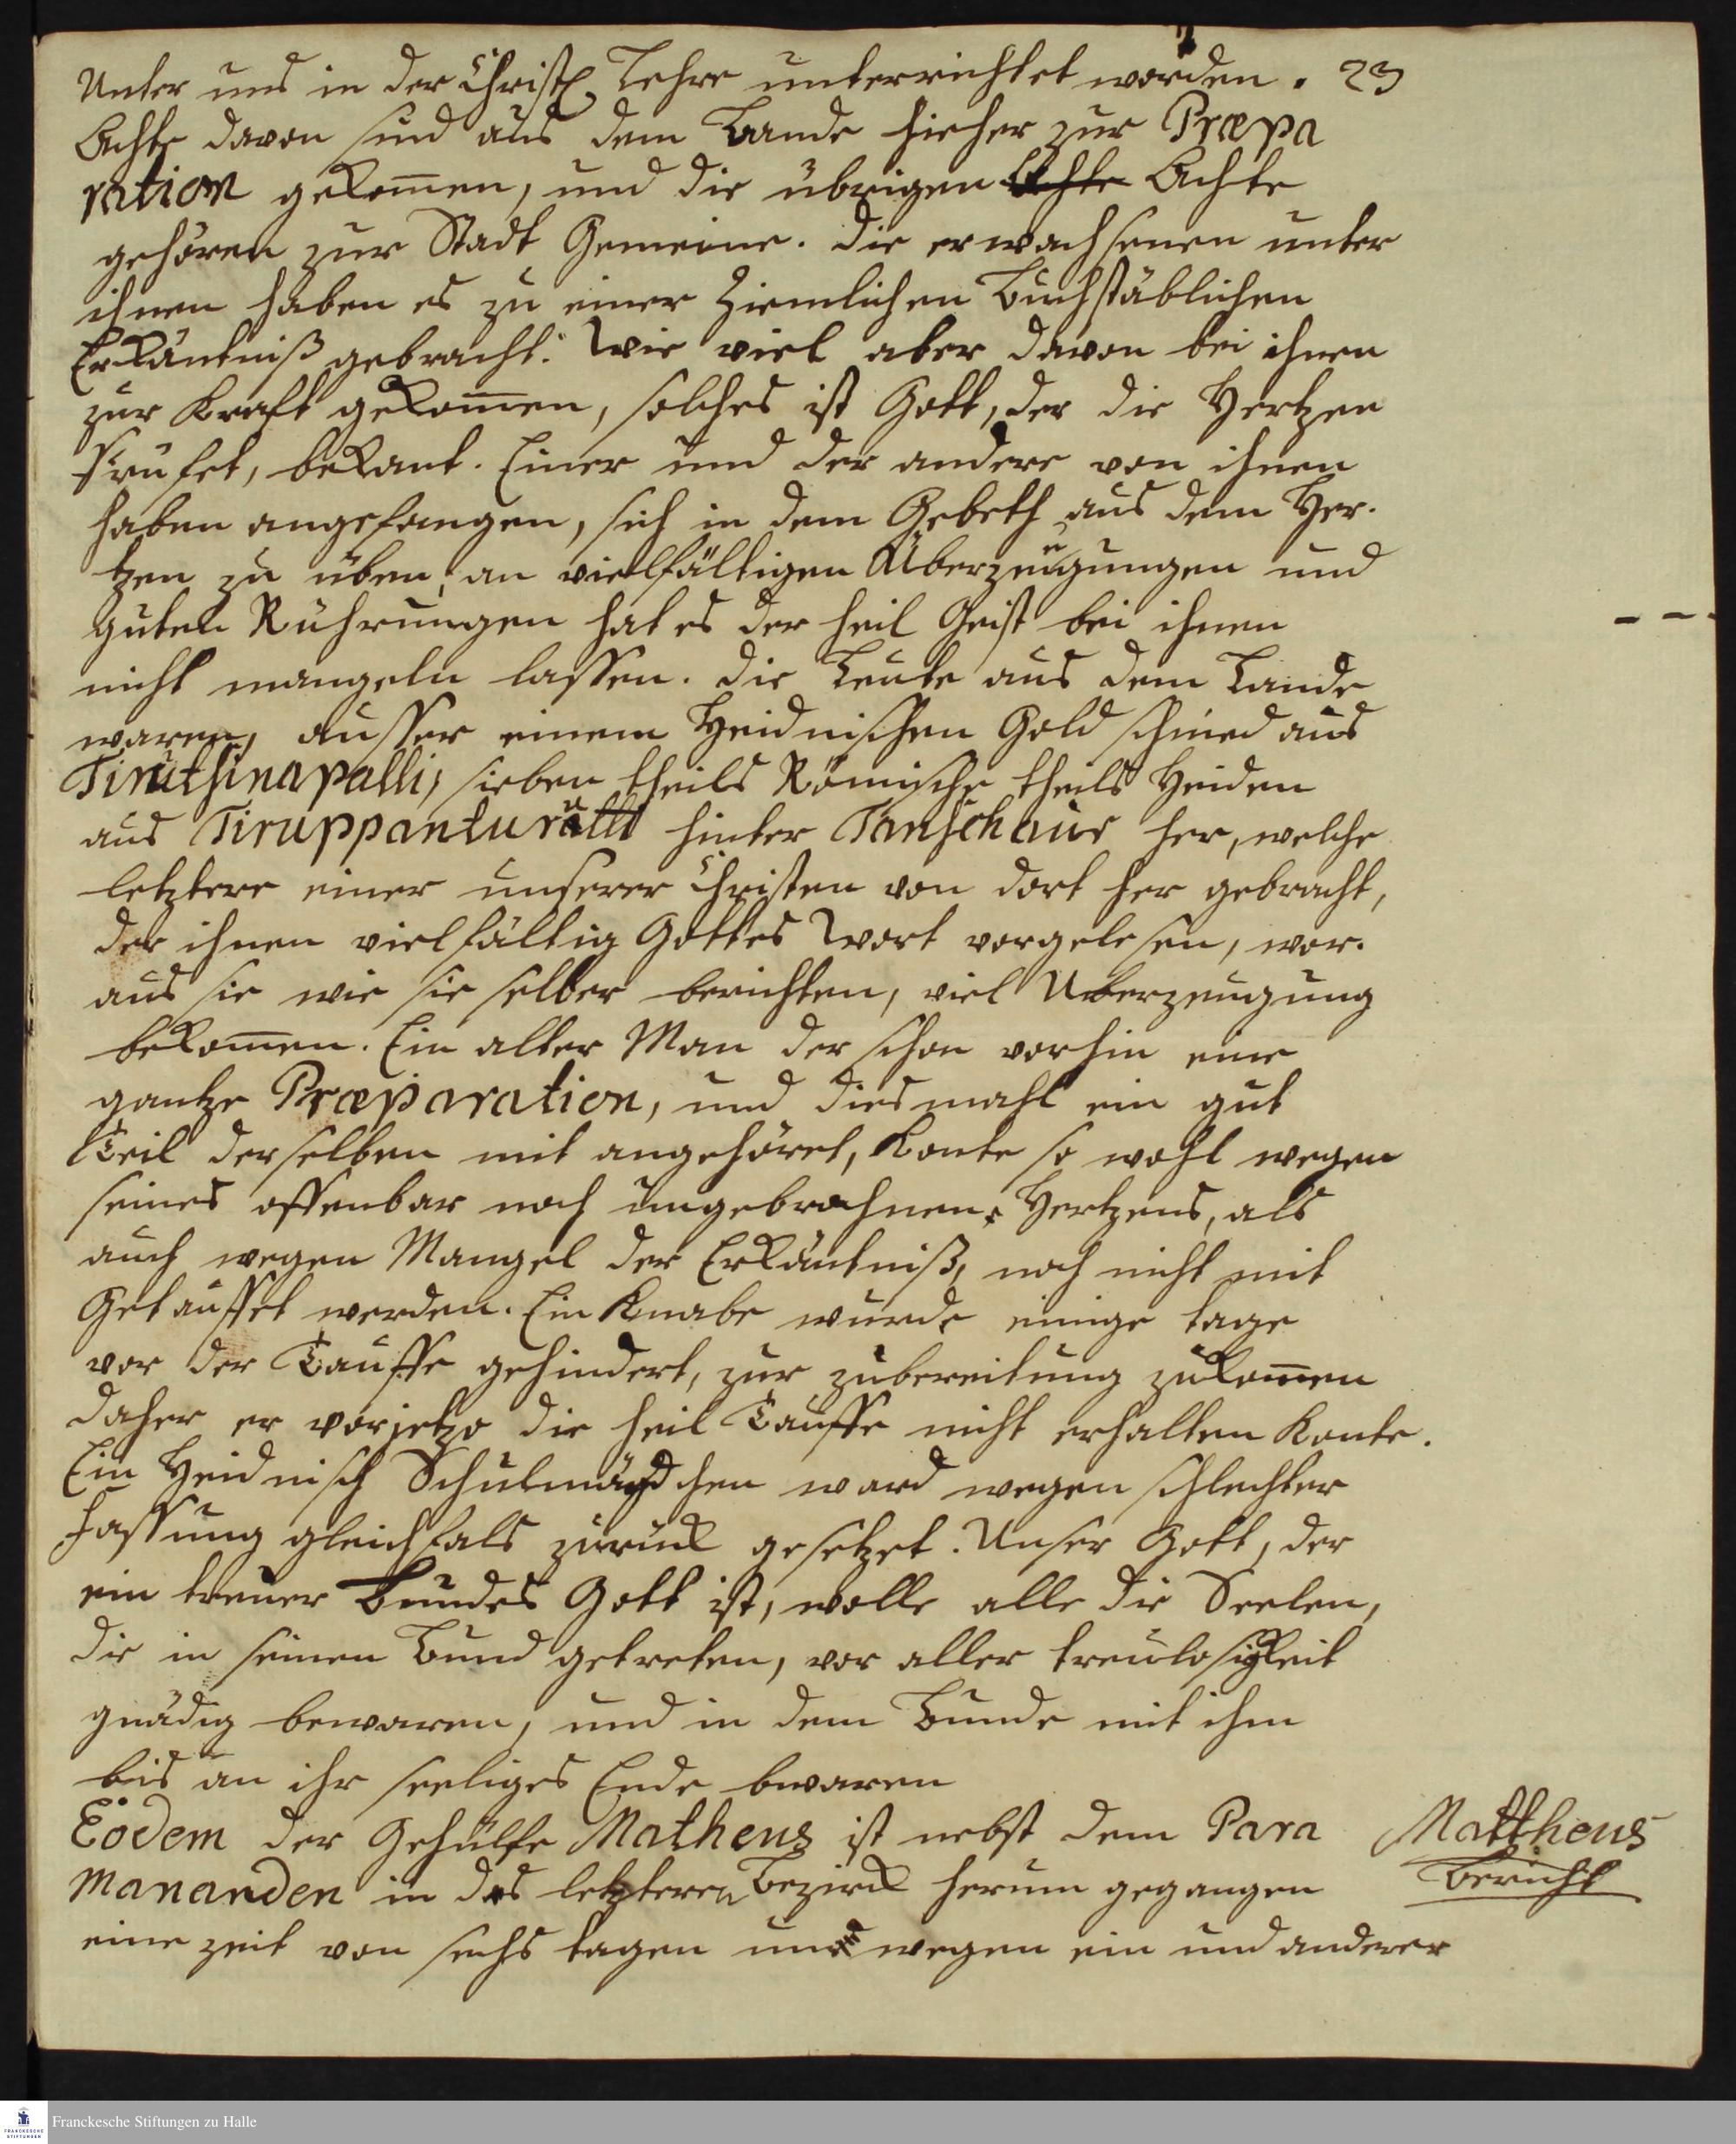 Unter uns in der Christl. Lehre unterrichtet worden. 23
Achte davon sind aus dem Lande hieher zur Præpa
ration gekom̅en, und die übrigen Achte Achte
gehören zur Stadt Gemeine. Die erwachsenen unter
ihnen haben es zu einer Ziemlichen Buchstäblichen
Erkäntniß gebracht: Wie viel aber davon bei ihnen
zur Kraft gekom̅en, solches ist Gott, der die Hertzen
prufet, bekant. Einer und der andere von ihnen
haben angefangen, sich in dem Gebeth aus dem Her-
tzen zu üben, an vielfältigen Überzeugungen und
guten Rührungen hat es der heil Geist bei ihnen
nicht mangeln lassen. Die Leute aus dem Lande
waren, ausser einem Heidnischen Gold schmied aus
Tirutsinapalli, sieben theils Römische theils Heiden
aus Tiruppanturutti hinter Tanschaur her, welche
letztere einer unserer Christen von dort her gebracht,
der ihnen vielfältig Gottes Wort vorgelesen, wor-
aus sie wie sie selber berichten, viel Uberzeugung
bekom̅en. Ein alter Man der schon vorhin eine
gantze Præparation, und diesmahl ein gut
Teil derselben mit angehöret, Konte so wohl wegen
seines offenbar noch ungebrochnen Hertzens, als
auch wegen Mangel der Erkäntniß, noch nicht mit
Getauffet werden. Ein Knabe wurde einige tage
vor der Tauffe gehindert, zur zubereitung zukom̅en
daher er vorjetzo die heil Tauffe nicht erhalten Konte.
Ein Heidnisch Schulmägdchen ward wegen schlechter
Fassung gleichfals zurück gesetzet. Unser Gott, der
ein treuer Bundes Gott ist, wolle alle die Seelen,
die in seinen Bund getreten, vor aller treulosigkeit
gnädig bewaren, und in dem Bunde mit ihm
bis an ihr seeliges Ende bwaren
Eodem der Gehülfe Matheus ist nebst dem Para
mananden in des letzteren Bezirck herum gegangen
eine zeit von sechs tagen und wegen ein und anderer
Mattheus
Bericht
Franckesche Stiftungen zu Halle
FRANCKESCHE
STIFTUNGEN